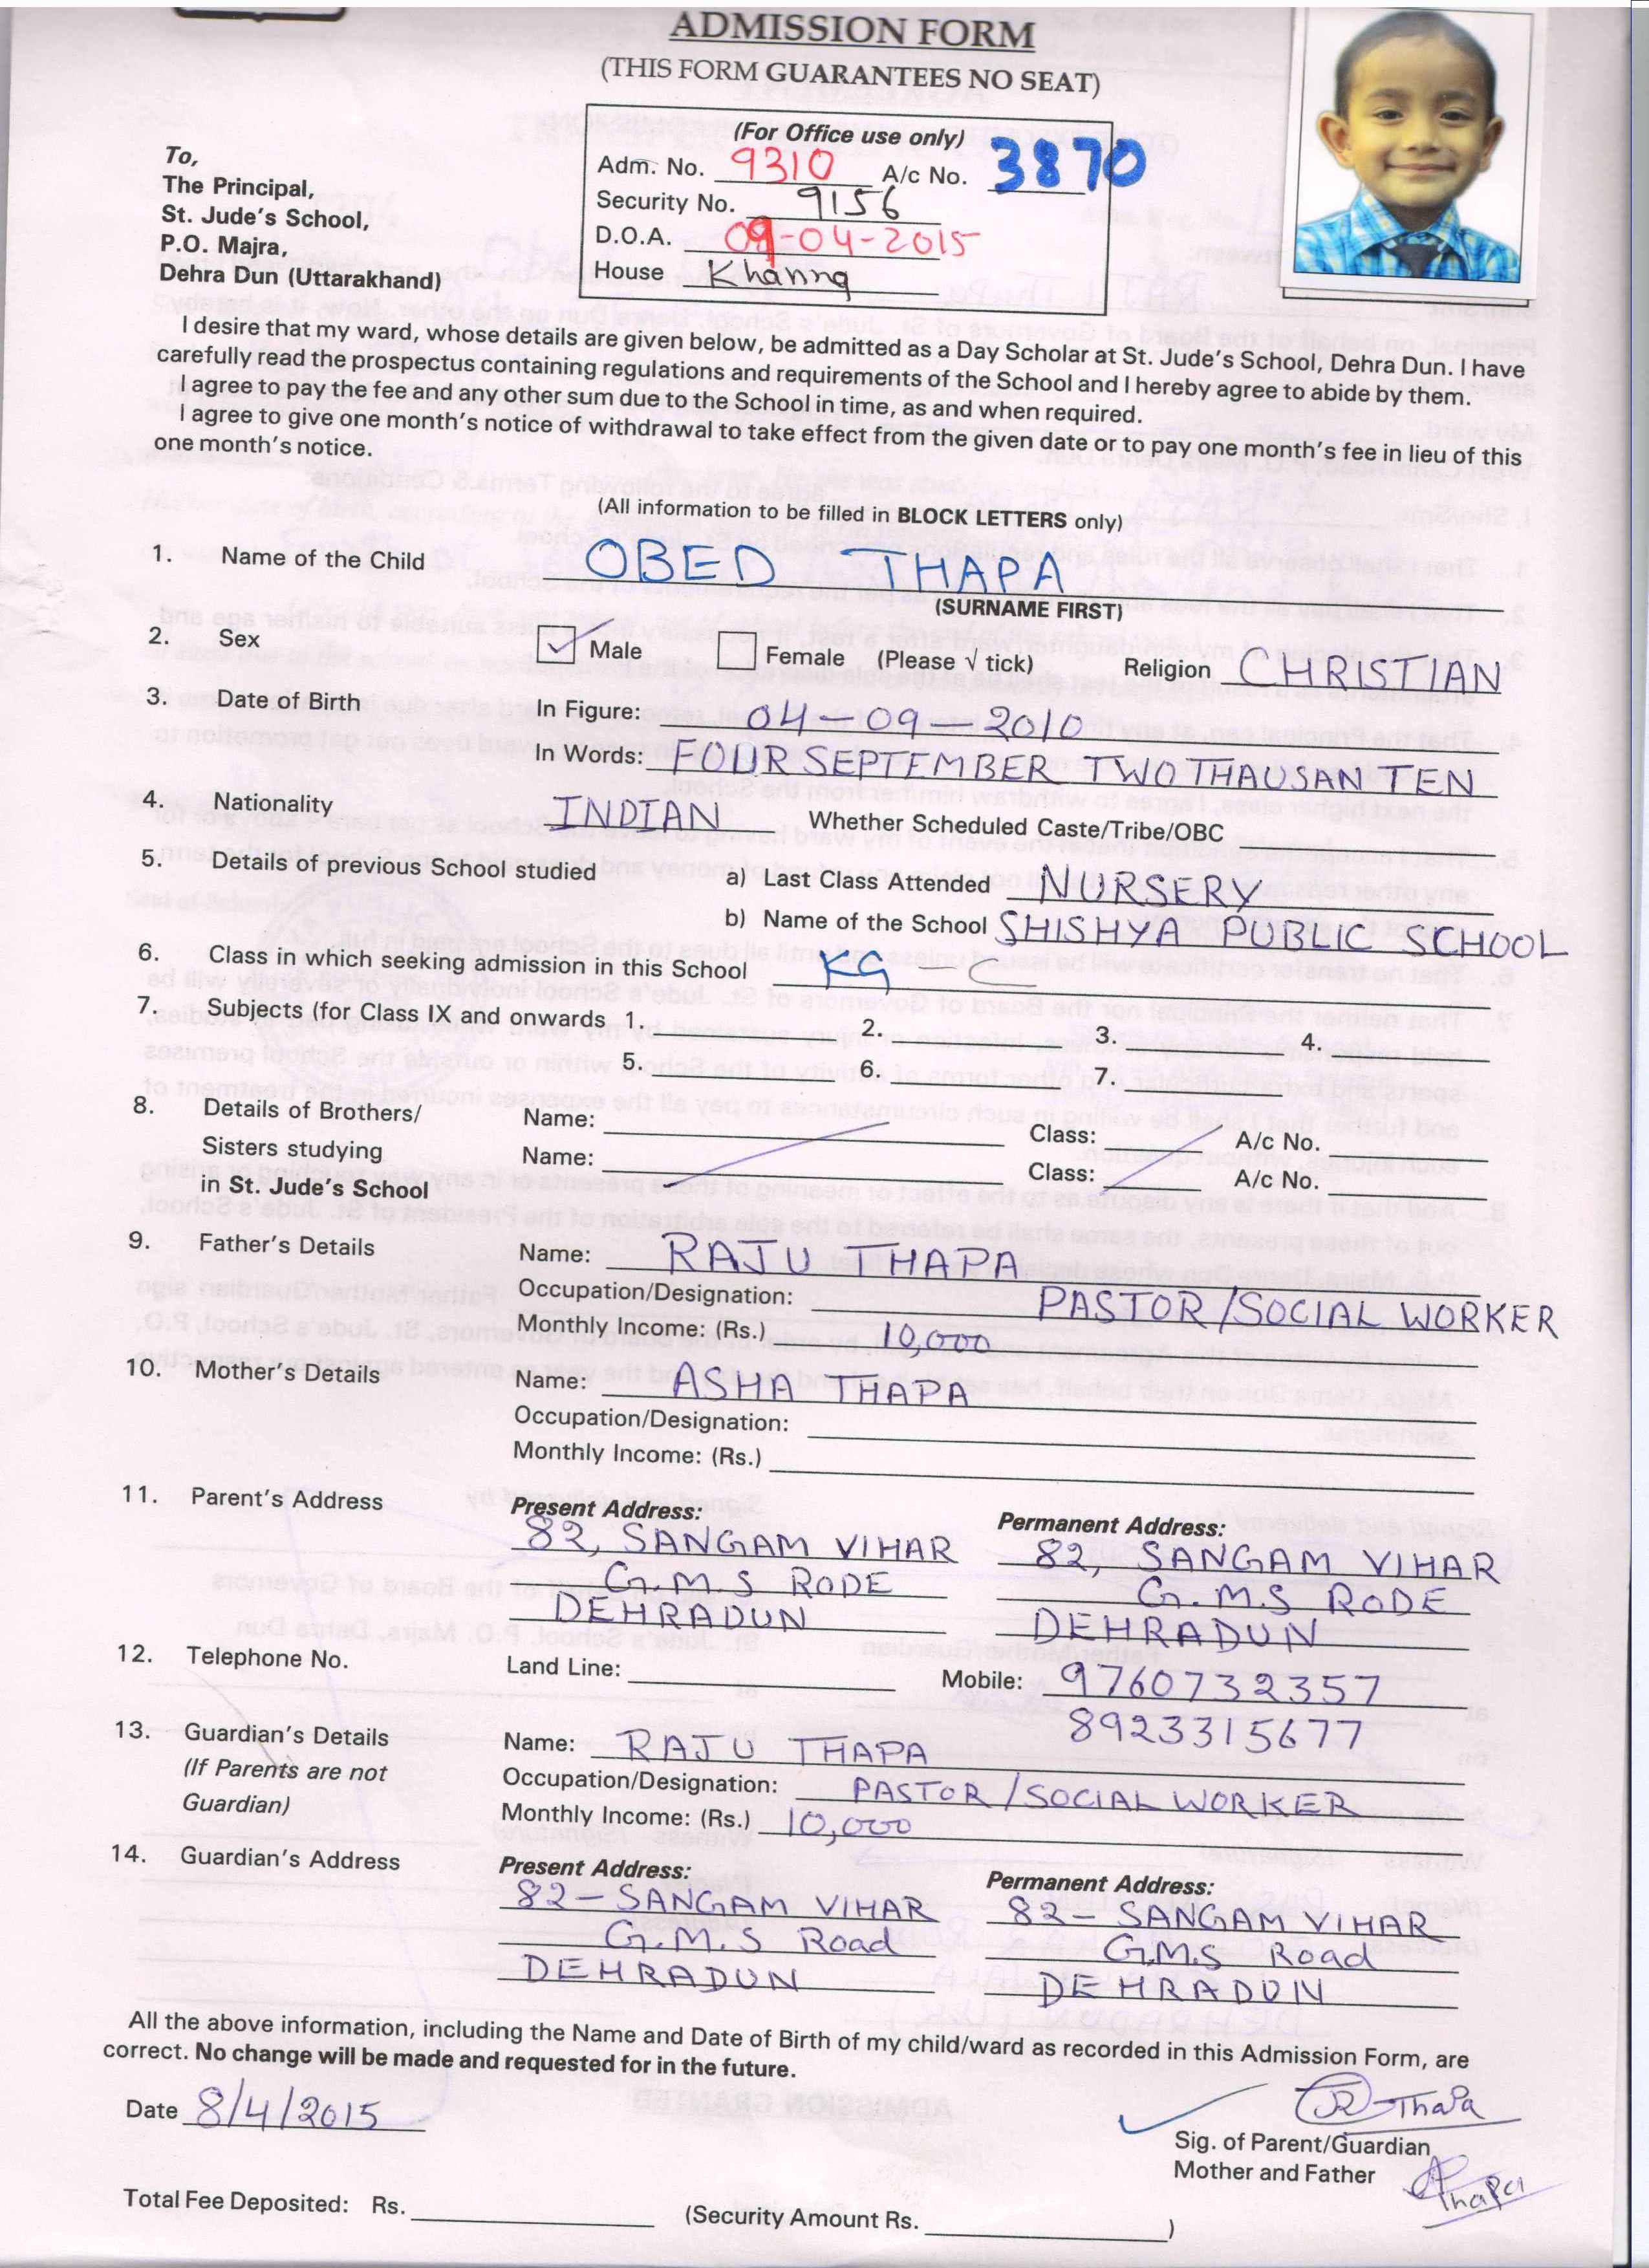 ADMISSION FORM
(THIS FORM GUARANTEES NO SEAT)
(For Office use only)
Adm. No. 9310 A/c No. 3870
Security No. 9156
D.O.A. 09-04-2015
House Khanna
To,
The Principal,
St. Jude's School,
P.O. Majra,
Dehra Dun (Uttarakhand)
I desire that my ward, whose details are given below, be admitted as a Day Scholar at St. Jude's School, Dehra Dun. I have
carefully read the prospectus containing regulations and requirements of the School and I hereby agree to abide by them.
I agree to pay the fee and any other sum due to the School in time, as and when required.
I agree to give one month's notice of withdrawal to take effect from the given date or to pay one month's fee in lieu of this
one month's notice.
(All information to be filled in BLOCK LETTERS only)
1. Name of the Child OBED THAPA
(SURNAME FIRST)
2. Sex Male Female (Please √ tick) Religion CHRISTIAN
3. Date of Birth In Figure: 04-09-2010
In Words: FOUR SEPTEMBER TWO THAUSAN TEN
4. Nationality INDIAN Whether Scheduled Caste/Tribe/OBC
5. Details of previous School studied a) Last Class Attended NURSERY
b) Name of the School SHISHYA PUBLIC SCHOOL
6. Class in which seeking admission in this School KG - C
7. Subjects (for Class IX and onwards 1. 2. 3. 4.
5. 6. 7.
8. Details of Brothers/ Name: Class: A/c No.
Sisters studying Name: Class: A/c No.
in St. Jude's School
9. Father's Details Name: RAJU THAPA
Occupation/Designation: PASTOR/SOCIAL WORKER
Monthly Income: (Rs.) 10,000
10. Mother's Details Name: ASHA THAPA
Occupation/Designation:
Monthly Income: (Rs.)
11. Parent's Address Present Address: Permanent Address:
82, SANGAM VIHAR 82, SANGAM VIHAR
G.M.S RODE G.M.S RODE
DEHRADUN DEHRADUN
12. Telephone No. Land Line: Mobile: 9760732357
8923315677
13. Guardian's Details Name: RAJU THAPA
(If Parents are not Occupation/Designation: PASTOR/SOCIAL WORKER
Guardian) Monthly Income: (Rs.) 10,000
14. Guardian's Address Present Address: Permanent Address:
82-SANGAM VIHAR 82-SANGAM VIHAR
G.M.S Road G.M.S Road
DEHRADUN DEHRADUN
All the above information, including the Name and Date of Birth of my child/ward as recorded in this Admission Form, are
correct. No change will be made and requested for in the future.
Date 8/4/2015
R-Thapa
Sig. of Parent/Guardian
Mother and Father AThapa
Total Fee Deposited: Rs. (Security Amount Rs. )